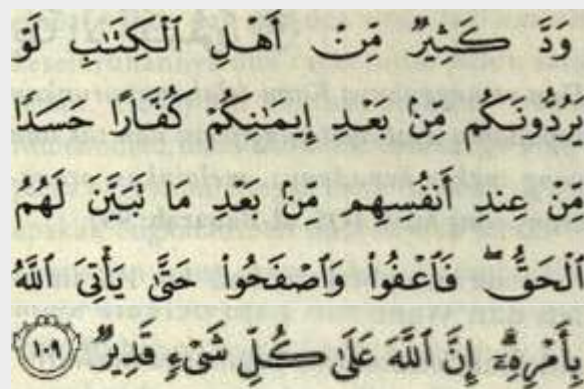 وَدَّ كَثِيرٌ مِّنْ أَهْلِ ٱلْكِتَٰبِ لَوْ
يَرُدُّونَكُم مِّنۢ بَعْدِ إِيمَٰنِكُمْ كُفَّارًا حَسَدًا
مِّنْ عِندِ أَنفُسِهِم مِّنۢ بَعْدِ مَا تَبَيَّنَ لَهُمُ
ٱلْحَقُّ ۖ فَٱعْفُوا۟ وَٱصْفَحُوا۟ حَتَّىٰ يَأْتِىَ ٱللَّهُ
بِأَمْرِهِۦٓ ۗ إِنَّ ٱللَّهَ عَلَىٰ كُلِّ شَىْءٍ قَدِيرٌ ﴿١٠٩﴾